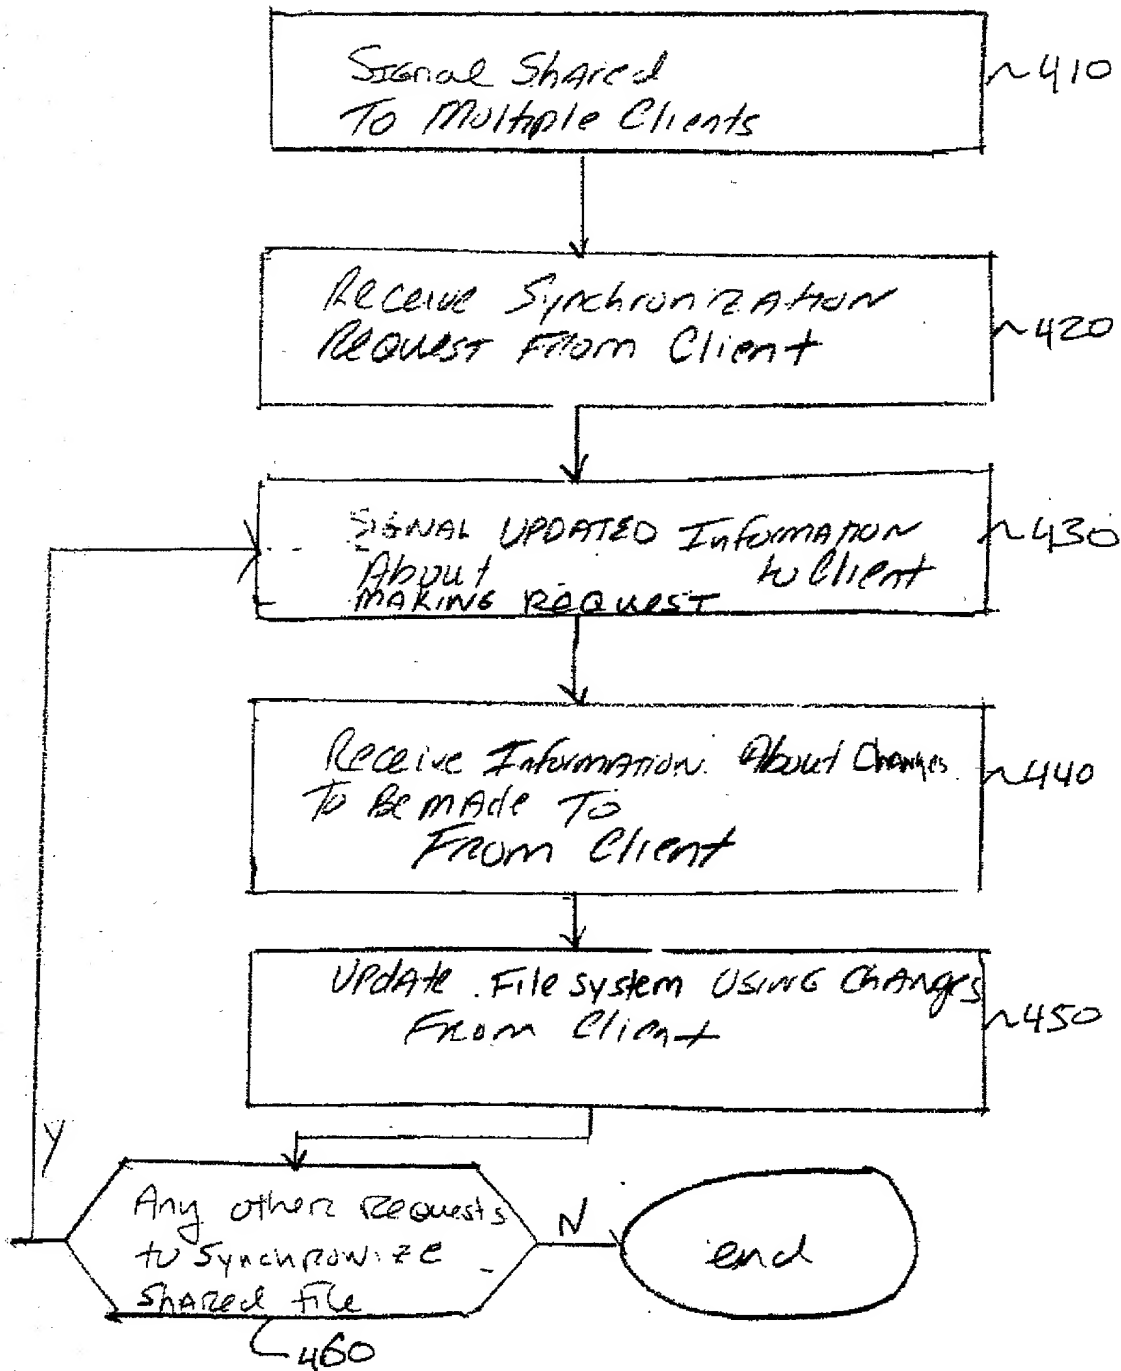 Signal Shared
To Multiple Clients
410
Receive Synchronization
Request From Client
420
SIGNAL UPDATED Information
About to Client
MAKING REQUEST
430
Receive Information About Changes
To Be made To
From Client
440
Update File system USING Changes
From Client
450
Y
Any other Requests
to Synchronize
Shared File
N
end
460